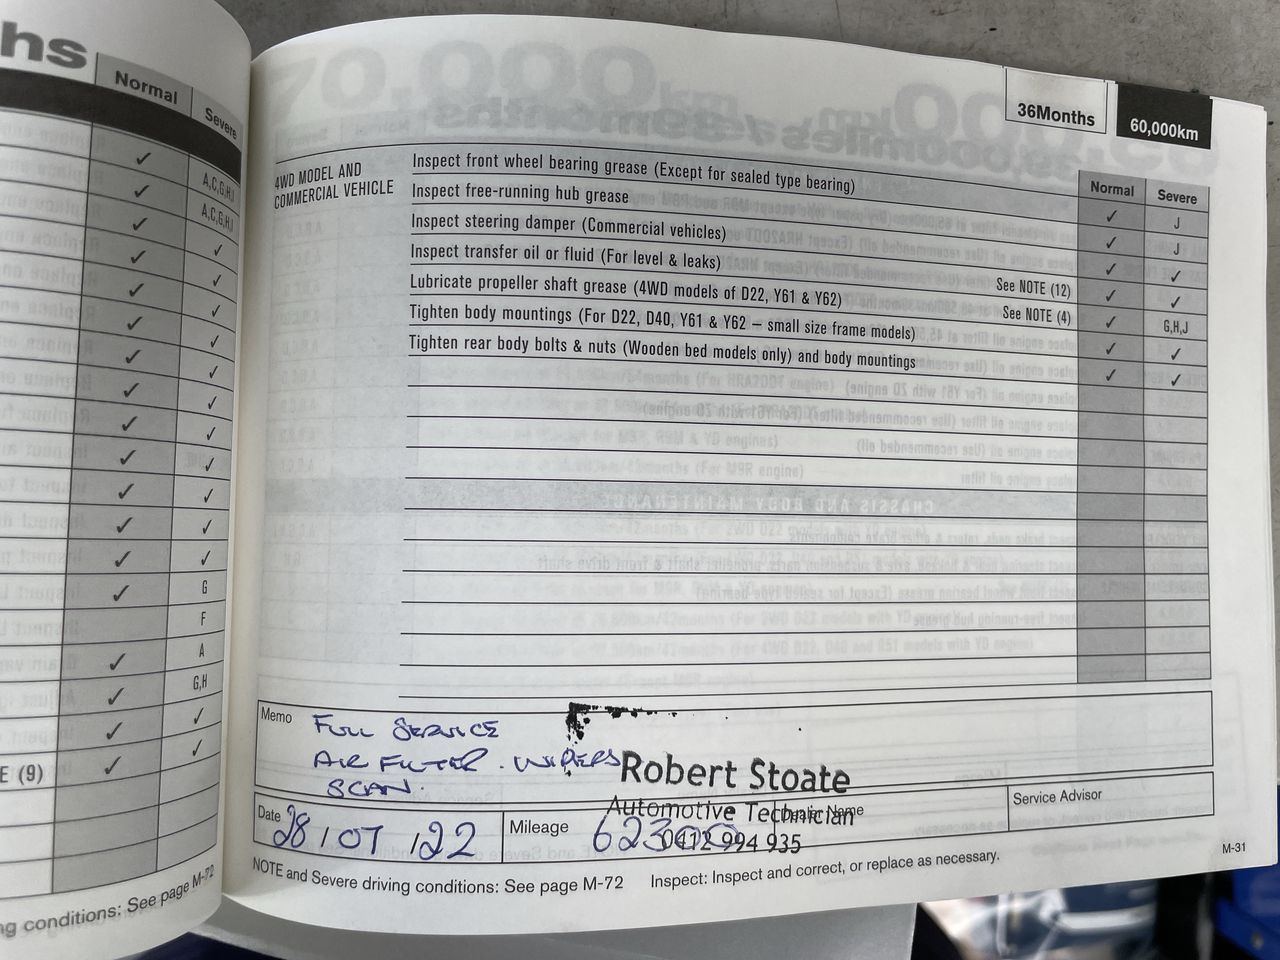 hs
Normal
Severe
✓ A,C,G,H,I
✓ A,C,G,H,I
✓ ✓
✓ ✓
✓ ✓
✓ ✓
✓ ✓
✓ ✓
✓ ✓
✓ ✓
✓ ✓
✓ ✓
✓ ✓
✓ G
F
✓ A
✓ G,H
✓ ✓
E (9) ✓ ✓
ng conditions: See page M-72
36Months
60,000km
Normal
Severe
4WD MODEL AND
COMMERCIAL VEHICLE
Inspect front wheel bearing grease (Except for sealed type bearing) ✓ J
Inspect free-running hub grease ✓ J
Inspect steering damper (Commercial vehicles) ✓ ✓
Inspect transfer oil or fluid (For level & leaks) See NOTE (12) ✓ ✓
Lubricate propeller shaft grease (4WD models of D22, Y61 & Y62) See NOTE (4) ✓ G,H,J
Tighten body mountings (For D22, D40, Y61 & Y62 – small size frame models) ✓ ✓
Tighten rear body bolts & nuts (Wooden bed models only) and body mountings ✓ ✓
Memo
FULL SERVICE
AIR FILTER. WIPERS
SCAN.
Robert Stoate
Automotive Technician
0412 994 935
Date 28/07/22
Mileage 62300
Dealer Name
Service Advisor
NOTE and Severe driving conditions: See page M-72
Inspect: Inspect and correct, or replace as necessary.
M-31